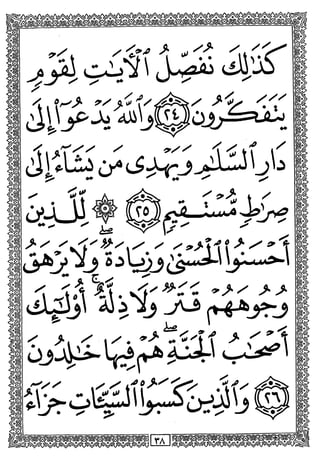 كَذَٰلِكَ نُفَصِّلُ ٱلْأٓيَـٰتِ لِقَوْمٍ
يَتَفَكَّرُونَ ٢٤ وَٱللَّهُ يَدْعُوٓا۟ إِلَىٰ
دَارِ ٱلسَّلَـٰمِ وَيَهْدِى مَن يَشَآءُ إِلَىٰ
صِرَٰطٍ مُّسْتَقِيمٍ ٢٥ ۞ لِّلَّذِينَ
أَحْسَنُوا۟ ٱلْحُسْنَىٰ وَزِيَادَةٌ ۖ وَلَا يَرْهَقُ
وُجُوهَهُمْ قَتَرٌ وَلَا ذِلَّةٌ ۚ أُو۟لَـٰٓئِكَ
أَصْحَـٰبُ ٱلْجَنَّةِ ۖ هُمْ فِيهَا خَـٰلِدُونَ
٢٦ وَٱلَّذِينَ كَسَبُوا۟ ٱلسَّيِّـَٔاتِ جَزَآءُ
٣٨